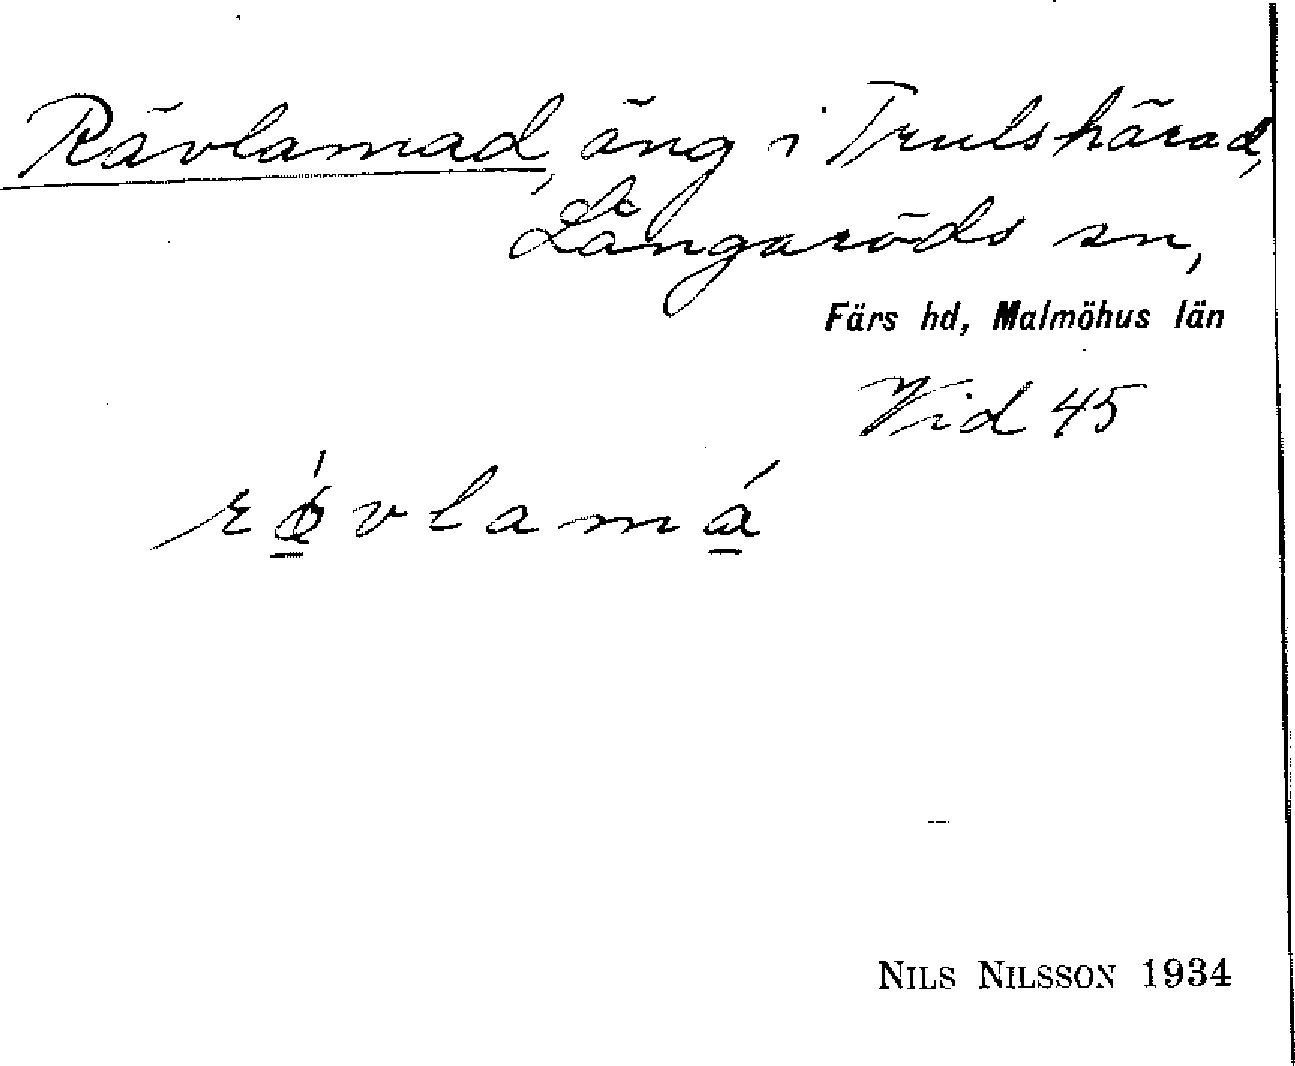 Rävlamad, äng i Trulshärad,
Långaröds sn,
Färs hd, Malmöhus län
Vid 45
NILS NILSSON 1934